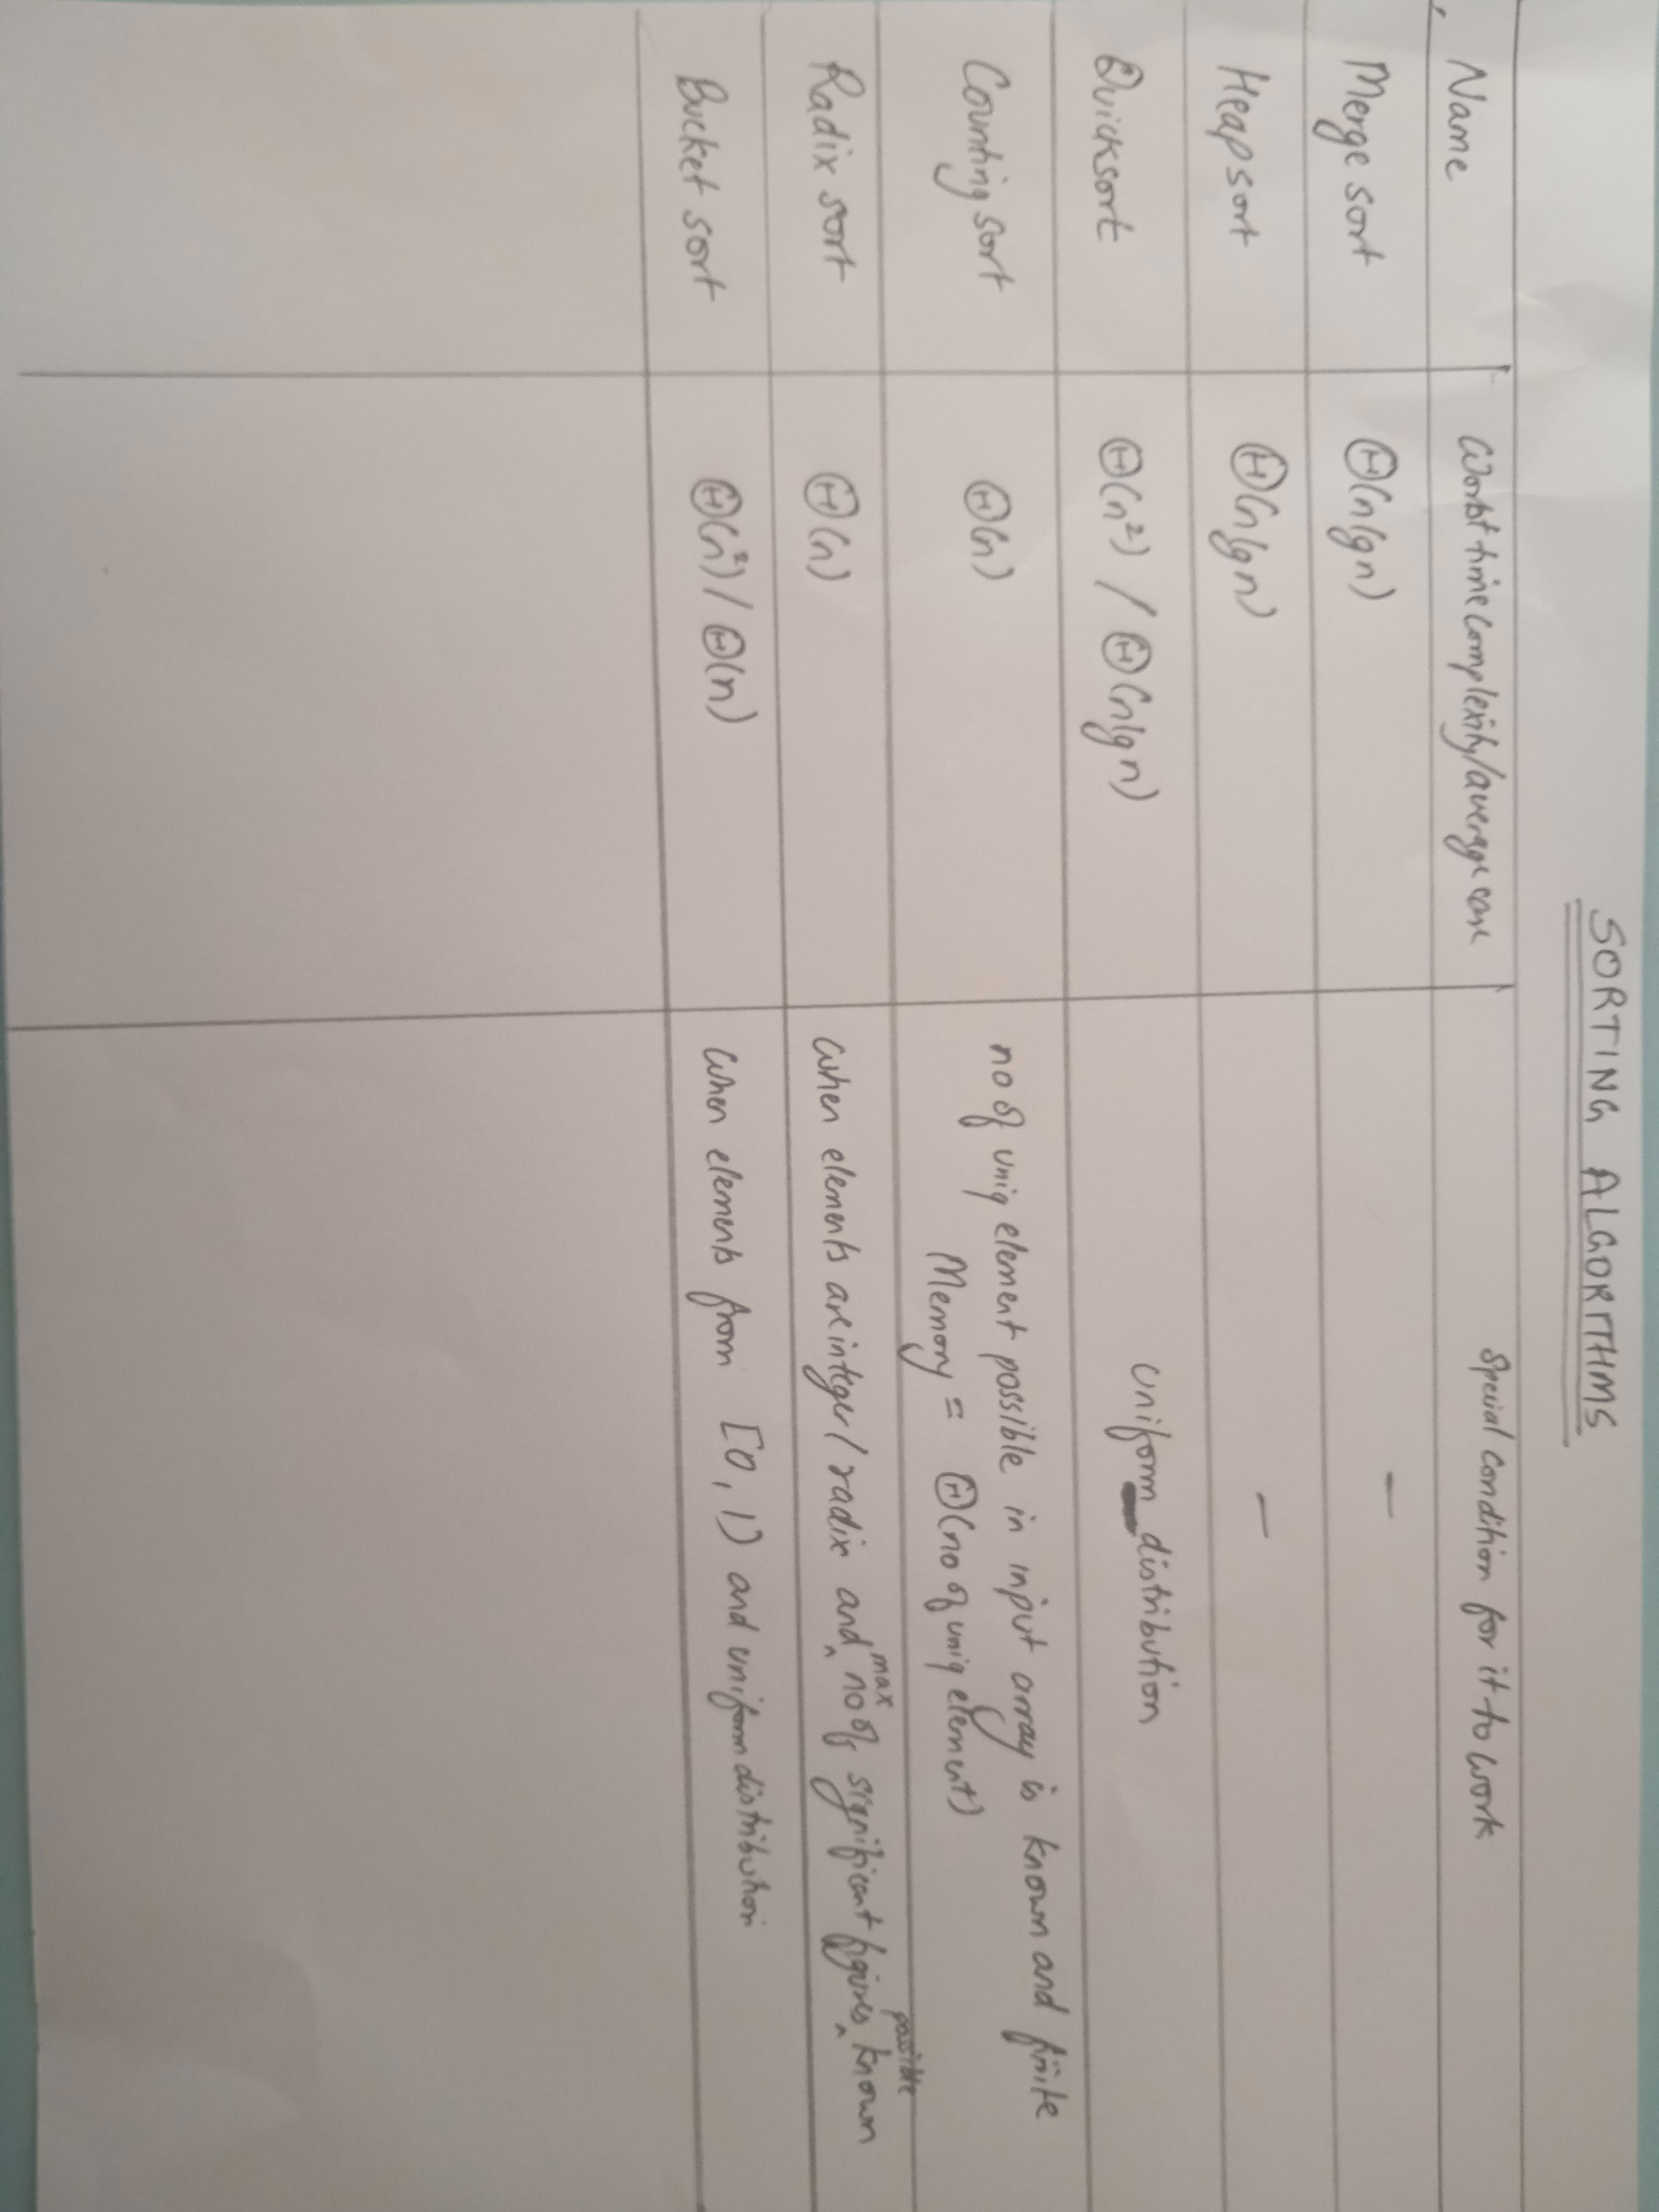 SORTING ALGORITHMS
Name Worst time complexity/average case Special condition for it to work
Merge sort Θ(nlgn) —
Heapsort Θ(nlgn) —
Quicksort Θ(n²) / Θ(nlgn) Uniform distribution
Counting sort Θ(n) no of uniq element possible in input array is known and finite
Memory = Θ(no of uniq element)
Radix sort Θ(n) when elements are integer/radix and max no of significant figures possible known
Bucket sort Θ(n²)/ Θ(n) when elements from [0,1) and uniform distribution